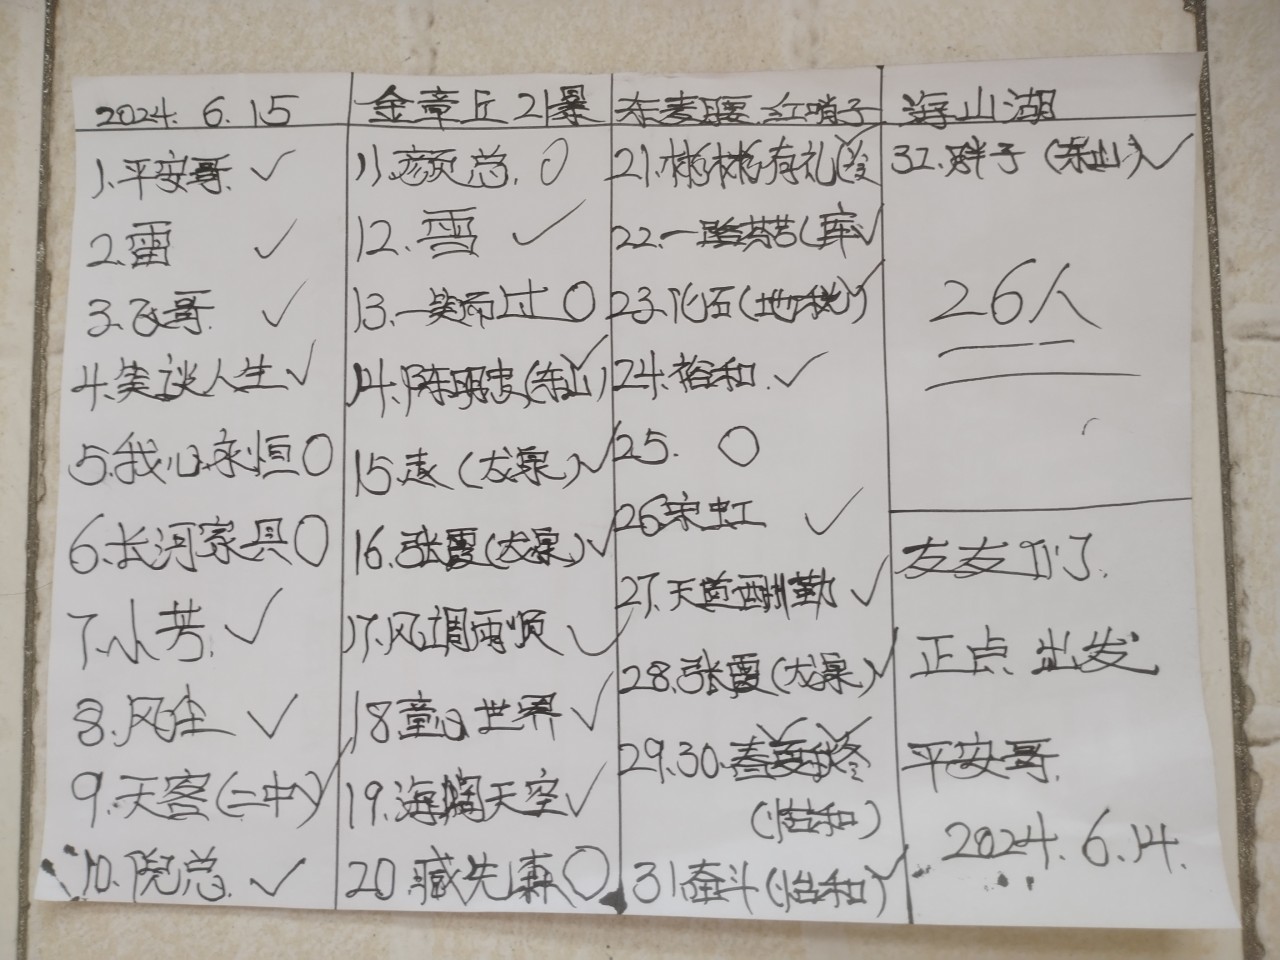 2024. 6. 15
1.平安哥. ✓
2.雷 ✓
3.飞哥. ✓
4.笑谈人生 ✓
5.我心永恒 〇
6.长河家具 〇
7.小芳. ✓
8.风尘 ✓
9.天客(二中) ✓
10.倪总. ✓
金章丘21
11.颜总. 〇
12.雪 ✓
13.一笑而过 〇
14.陈明忠(东山) ✓
15.袁(龙泉) ✓
16.张霞(龙泉) ✓
17.风调雨顺 ✓
18童心世界 ✓
19.海阔天空 ✓
20.臧先森 〇
东麦腰 红哨子
21.彬彬有礼 ✓
22.一路 ✓
23.化石 ✓
24.裕和. ✓
25. 〇
26宋虹 ✓
27.天道酬勤 ✓
28.张霞(龙泉) ✓
29.30.春夏秋冬 ✓✓
(怡和)
31奋斗(怡和) ✓
海山湖
32.胖子(东山) ✓
26人
友友们.
正点出发
平安哥.
2024. 6. 14.